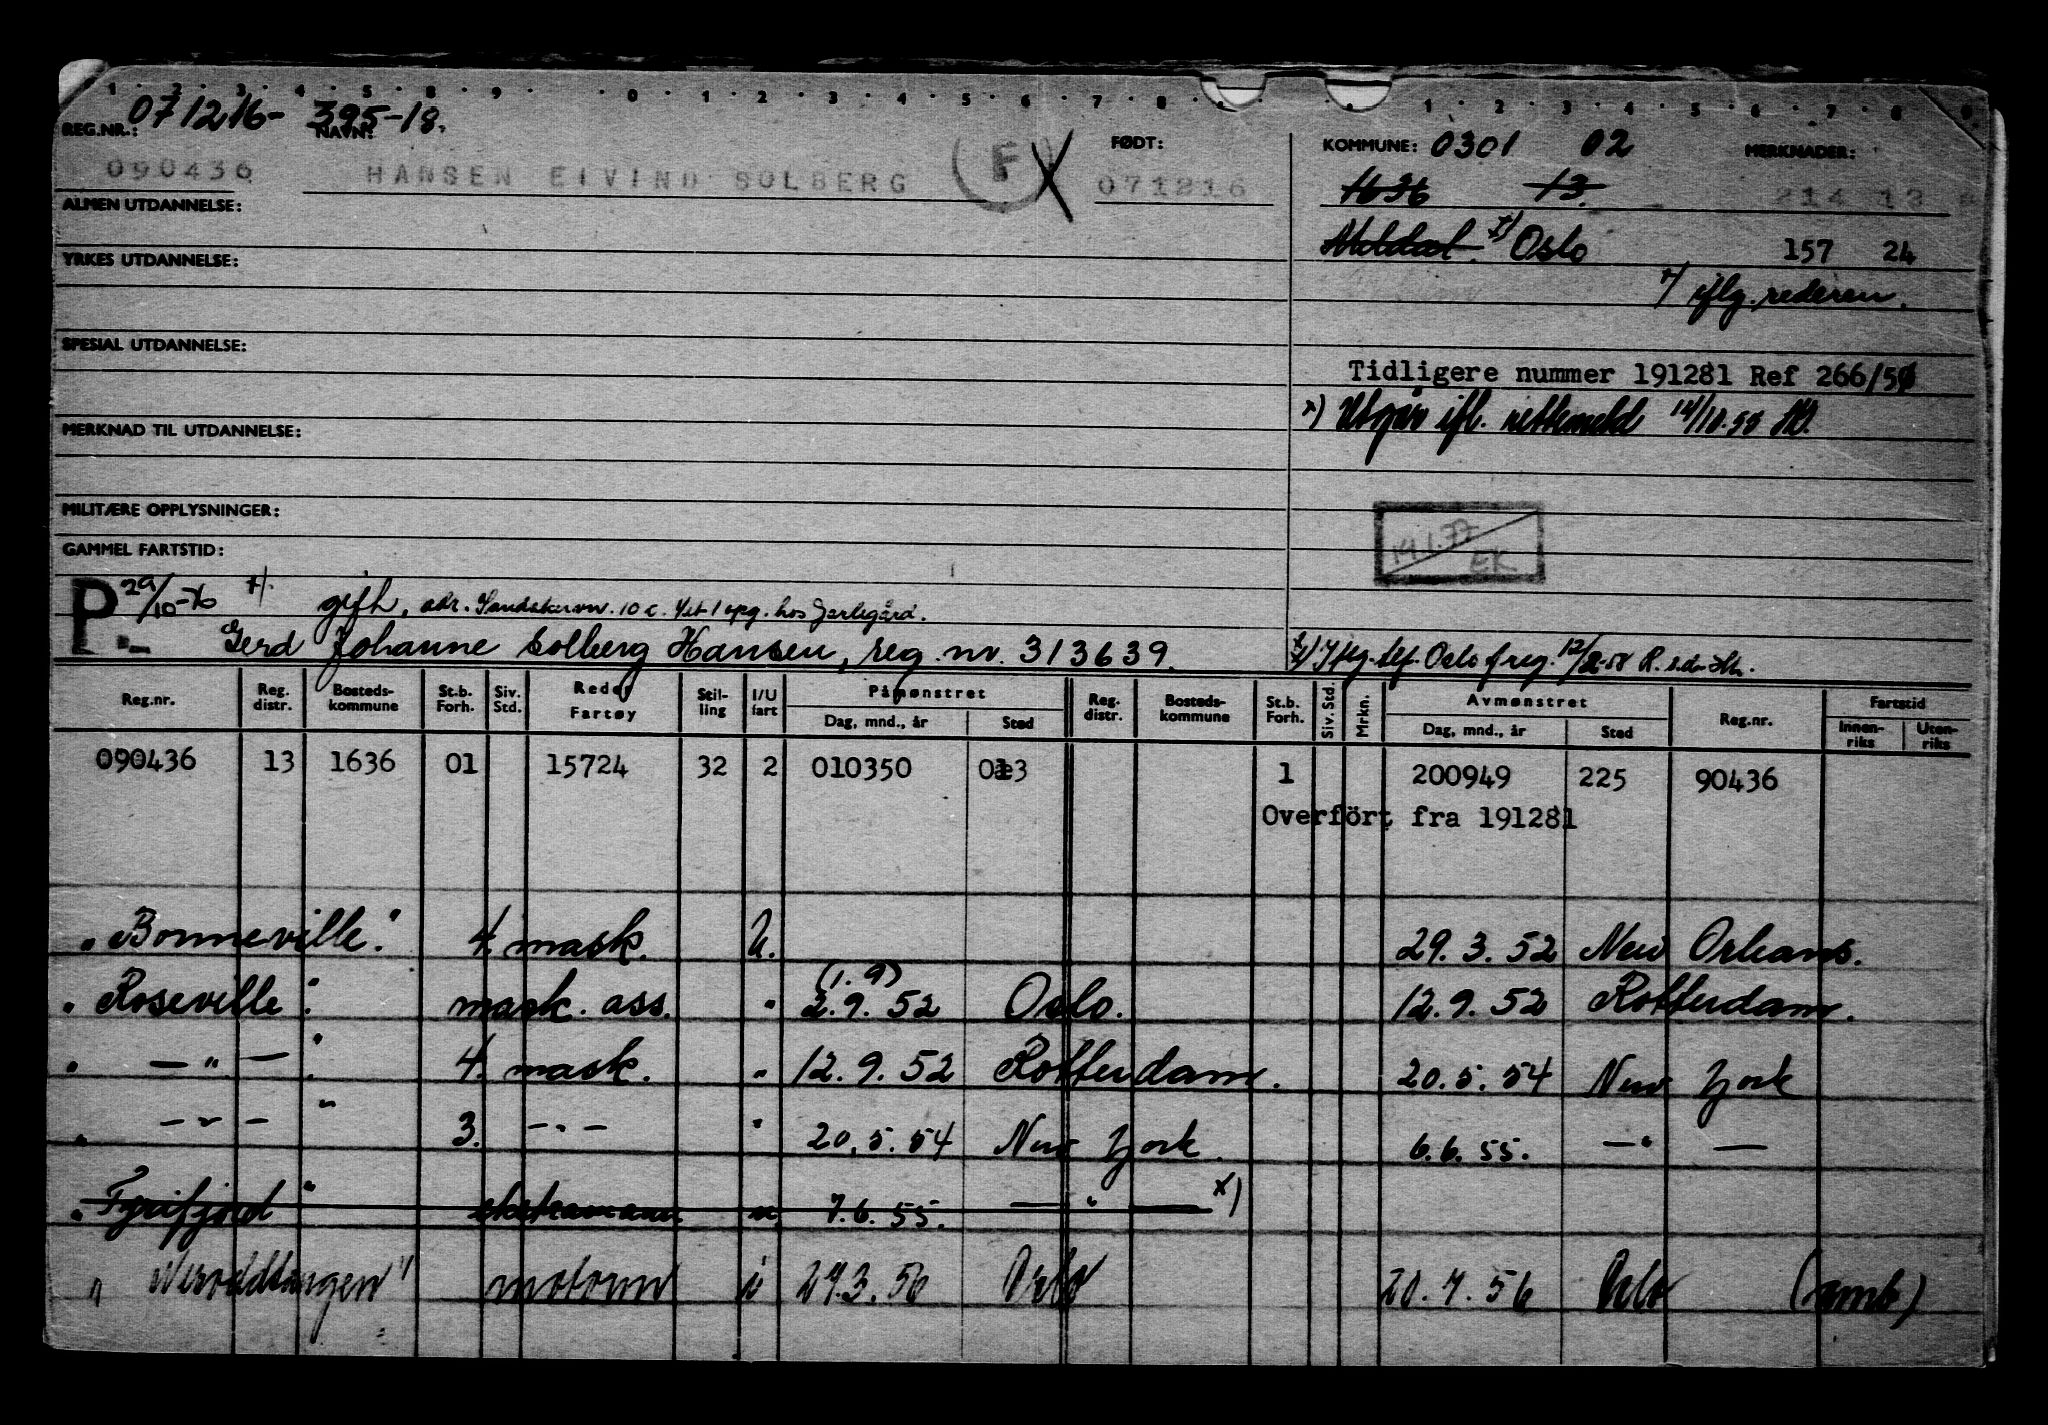 071216- 395-18.
REG.NR.: NAVN: FØDT: KOMMUNE: 0301 02 MERKNADER:
090436 HANSEN EIVIND SOLBERG F 071216 1636 13. 214 13
ALMEN UTDANNELSE:
Meldal. x) Oslo 157 24
YRKES UTDANNELSE:
x) iflg. rederen.
SPESIAL UTDANNELSE:
Tidligere nummer 191281 Ref 266/50
x) Utgår ifl. rettemeld
MERKNAD TIL UTDANNELSE:
MILITÆRE OPPLYSNINGER:
14.1.77 EK
GAMMEL FARTSTID:
P 29/10-76 x/. gift, adr.
Gerd Johanne Solberg Hansen, reg. nr. 313639.
Oslo freg.
Reg.nr. Reg. distr. Bosteds-kommune St.b. Forh. Siv. Std. Reder Fartøy Stil-ling I/U fart Påmønstret Dag, mnd., år Sted Reg. distr. Bosteds-kommune St.b. Forh. Siv. Std. Mrkn. Avmønstret Dag, mnd., år Sted Reg.nr. Fartstid Innen-riks Uten-riks
090436 13 1636 01 15724 32 2 010350 013 1 200949 225 90436
Overfört fra 191281
"Bonneville". 4. mask. U. 29.3.52 New Orleans.
" Roseville". mask. ass. " (1.9) 2.9.52 Oslo. 12.9.52 Rotterdam.
" — " — ". 4. mask. " 12.9.52 Rotterdam. 20.5.54 New York
" — " — " 3. — " — " 20.5.54 New York. 6.6.55. — " —
"Fyrifjord" u 7.6.55. — " — x)
motorm u 27.3.56 Oslo 20.4.56 Oslo (amb)